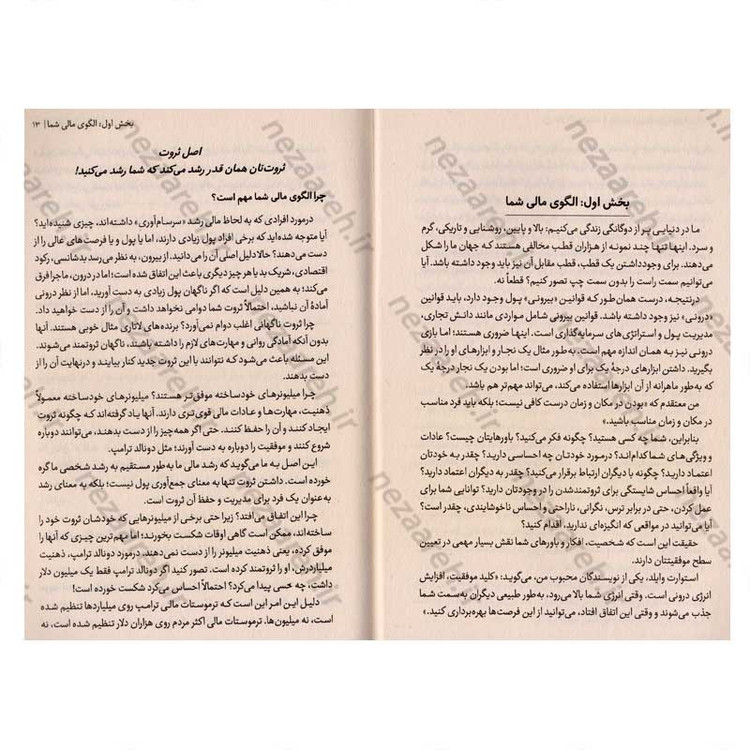 بخش اول: الگوی مالی شما
ما در دنیایی پر از دوگانگی زندگی می‌کنیم: بالا و پایین، روشنایی و تاریکی، گرم
و سرد. اینها تنها چند نمونه از هزاران قطب مخالفی هستند که جهان ما را شکل
می‌دهند. برای وجود داشتن یک قطب، قطب مقابل آن نیز باید وجود داشته باشد. آیا
می‌توانیم سمت راست را بدون سمت چپ تصور کنیم؟ قطعاً نه.
درنتیجه، درست همان‌طور که قوانین «بیرونی» پول وجود دارد، باید قوانین
«درونی» نیز وجود داشته باشد. قوانین بیرونی شامل مواردی مانند دانش تجاری،
مدیریت پول و استراتژی‌های سرمایه‌گذاری است. اینها ضروری هستند؛ اما بازی
درونی نیز به همان اندازه مهم است. به‌طور مثال یک نجار و ابزارهای او را در نظر
بگیرید. داشتن ابزارهای درجهٔ یک برای او ضروری است؛ اما بودن یک نجار درجهٔ یک
که به‌طور ماهرانه از آن ابزارها استفاده می‌کند، می‌تواند مهم‌تر هم باشد.
من معتقدم که «بودن در مکان و زمان درست کافی نیست؛ بلکه باید فرد مناسب
در مکان و زمان مناسب باشید.»
بنابراین، شما چه کسی هستید؟ چگونه فکر می‌کنید؟ باورهایتان چیست؟ عادات
و ویژگی‌های شما کدام‌اند؟ درمورد خودتان چه احساسی دارید؟ چقدر به خودتان
اعتماد دارید؟ چگونه با دیگران ارتباط برقرار می‌کنید؟ چقدر به دیگران اعتماد دارید؟
آیا واقعاً احساس شایستگی برای ثروتمندشدن را در وجودتان دارید؟ توانایی شما برای
عمل کردن، حتی در برابر ترس، نگرانی، ناراحتی و احساس ناخوشایندی، چقدر است؟
آیا می‌توانید در مواقعی که انگیزه‌ای ندارید، اقدام کنید؟
حقیقت این است که شخصیت، افکار و باورهای شما نقش بسیار مهمی در تعیین
سطح موفقیتتان دارند.
استوارت وایلد، یکی از نویسندگان محبوب من، می‌گوید: «کلید موفقیت، افزایش
انرژی درونی است. وقتی انرژی شما بالا می‌رود، به‌طور طبیعی دیگران به‌سمت شما
جذب می‌شوند و وقتی این اتفاق افتاد، می‌توانید از این فرصت‌ها بهره‌برداری کنید.»
بخش اول: الگوی مالی شما | ۱۳
اصل ثروت
ثروت‌تان همان قدر رشد می‌کند که شما رشد می‌کنید!
چرا الگوی مالی شما مهم است؟
درمورد افرادی که به لحاظ مالی رشد «سرسام‌آوری» داشته‌اند، چیزی شنیده‌اید؟
آیا متوجه شده‌اید که برخی افراد پول زیادی دارند، اما یا پول و یا فرصت‌های عالی را از
دست می‌دهند؟ حالا دلیل اصلی آن را می‌دانید. از بیرون، به نظر می‌رسد بدشانسی، رکود
اقتصادی، شریک بد یا هر چیز دیگری باعث این اتفاق شده است؛ اما در درون، ماجرا فرق
می‌کند؛ به همین دلیل است که اگر ناگهان پول زیادی به دست آورید، اما از درون
آمادهٔ آن نباشید، احتمالاً ثروت شما دوامی نخواهد داشت و آن را از دست خواهید داد.
چرا ثروت ناگهانی اغلب دوام نمی‌آورد؟ برنده‌های لاتاری مثال خوبی هستند. آنها
بدون آنکه آمادگی روانی و مهارت‌های لازم را داشته باشند، ناگهان ثروتمند می‌شوند.
این مسئله باعث می‌شود که نتوانند با این ثروت جدید کنار بیایند و درنهایت آن را از
دست بدهند.
چرا میلیونرهای خودساخته موفق‌تر هستند؟ میلیونرهای خودساخته معمولاً
ذهنیت، مهارت‌ها و عادات مالی قوی‌تری دارند. آنها یاد گرفته‌اند که چگونه ثروت
ایجاد کنند و آن را حفظ کنند. حتی اگر همه‌چیز را از دست بدهند، می‌توانند دوباره
شروع کنند و موفقیت را دوباره به دست آورند؛ مثل دونالد ترامپ.
این اصل به ما می‌گوید که رشد مالی ما به‌طور مستقیم به رشد شخصی ما گره
خورده است. داشتن ثروت تنها به معنای جمع‌آوری پول نیست؛ بلکه به معنای رشد
به‌عنوان یک فرد برای مدیریت و حفظ آن ثروت است.
چرا این اتفاق می‌افتد؟ زیرا حتی برخی از میلیونرهایی که خودشان ثروت خود را
ساخته‌اند، ممکن است گاهی اوقات شکست بخورند؛ اما مهم‌ترین چیزی که آنها را
موفق کرده، یعنی ذهنیت میلیونر را از دست نمی‌دهند. درمورد دونالد ترامپ، ذهنیت
میلیاردرش، او را ثروتمند کرده است. تصور کنید اگر دونالد ترامپ فقط یک میلیون دلار
داشت، چه حسی پیدا می‌کرد؟ احتمالاً احساس می‌کرد شکست خورده است!
دلیل این امر این است که ترموستات مالی ترامپ روی میلیاردها تنظیم شده
است، نه میلیون‌ها. ترموستات مالی اکثر مردم روی هزاران دلار تنظیم شده است، نه
nezaareh.ir